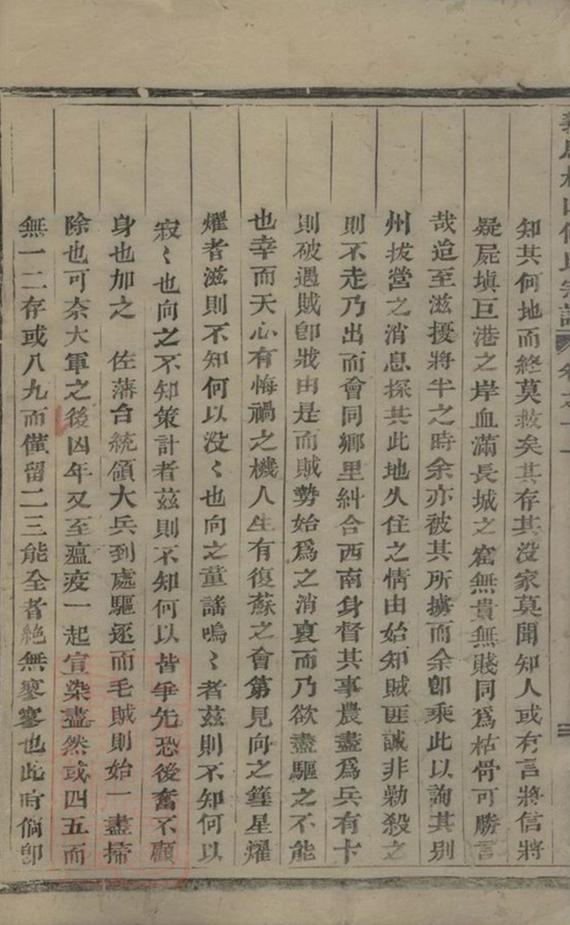 知其何地而終莫救矣其存其没家莫聞知人或有言將信將
疑屍塡巨港之岸血滿長城之窟無貴無賤同爲枯骨可勝言
哉迨至滋擾將半之時余亦被其所擄而余卽乘此以詢其別
州拔營之消息探其此地久住之情由始知賊匪誠非勦殺之
則不走乃出而會同鄉里糾合西南身督其事農盡爲兵有卡
則破遇賊卽戕由是而賊勢始爲之消衰而乃欲盡驅之不能
也幸而天心有悔禍之機人生有復蘇之會第見向之篲星燿
燿者滋則不知何以没〻也向之童謠嗚〻者茲則不知何以
寂〻也向之不知策計者茲則不知何以皆爭先恐後奮不顧
身也加之　佐藩台統領大兵到處驅逐而毛賊則始一盡掃
除也可奈大軍之後凶年又至瘟疫一起宣染盡然或四五而
無一二存或八九而僅留二三能全者絶無寥寥也此時倘卽
氏宗譜